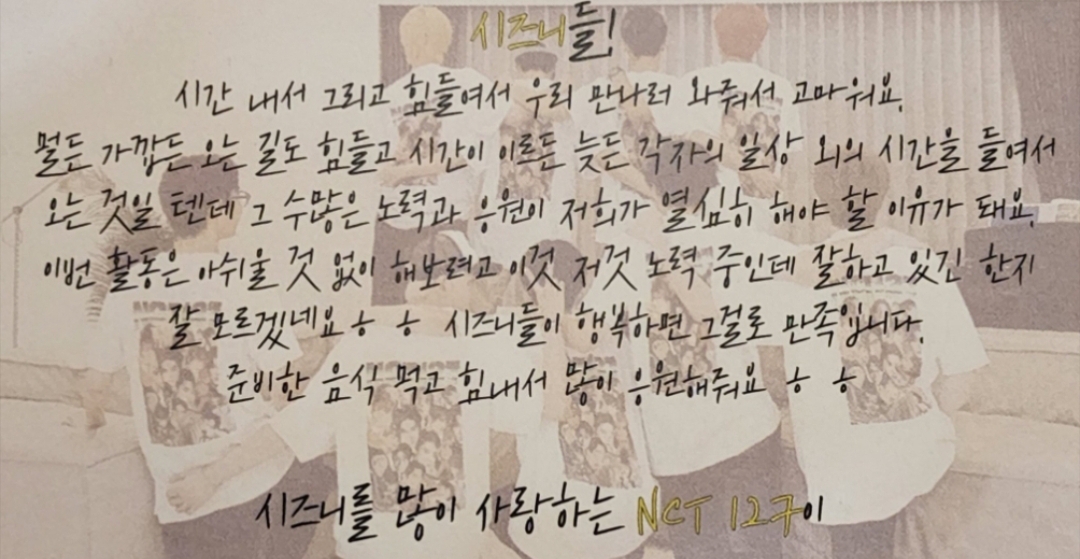 시즈니들!
시간 내서 그리고 힘들여서 우리 만나러 와줘서 고마워요.
멀든 가깝든 오는 길도 힘들고 시간이 이르든 늦든 각자의 일상 외의 시간을 들여서
오는 것일 텐데 그 수많은 노력과 응원이 저희가 열심히 해야 할 이유가 돼요.
이번 활동은 아쉬울 것 없이 해보려고 이것 저것 노력 중인데 잘하고 있긴 한지
잘 모르겠네요ㅎ ㅎ 시즈니들이 행복하면 그걸로 만족입니다.
준비한 음식 먹고 힘내서 많이 응원해줘요 ㅎ ㅎ
시즈니를 많이 사랑하는 NCT 127이